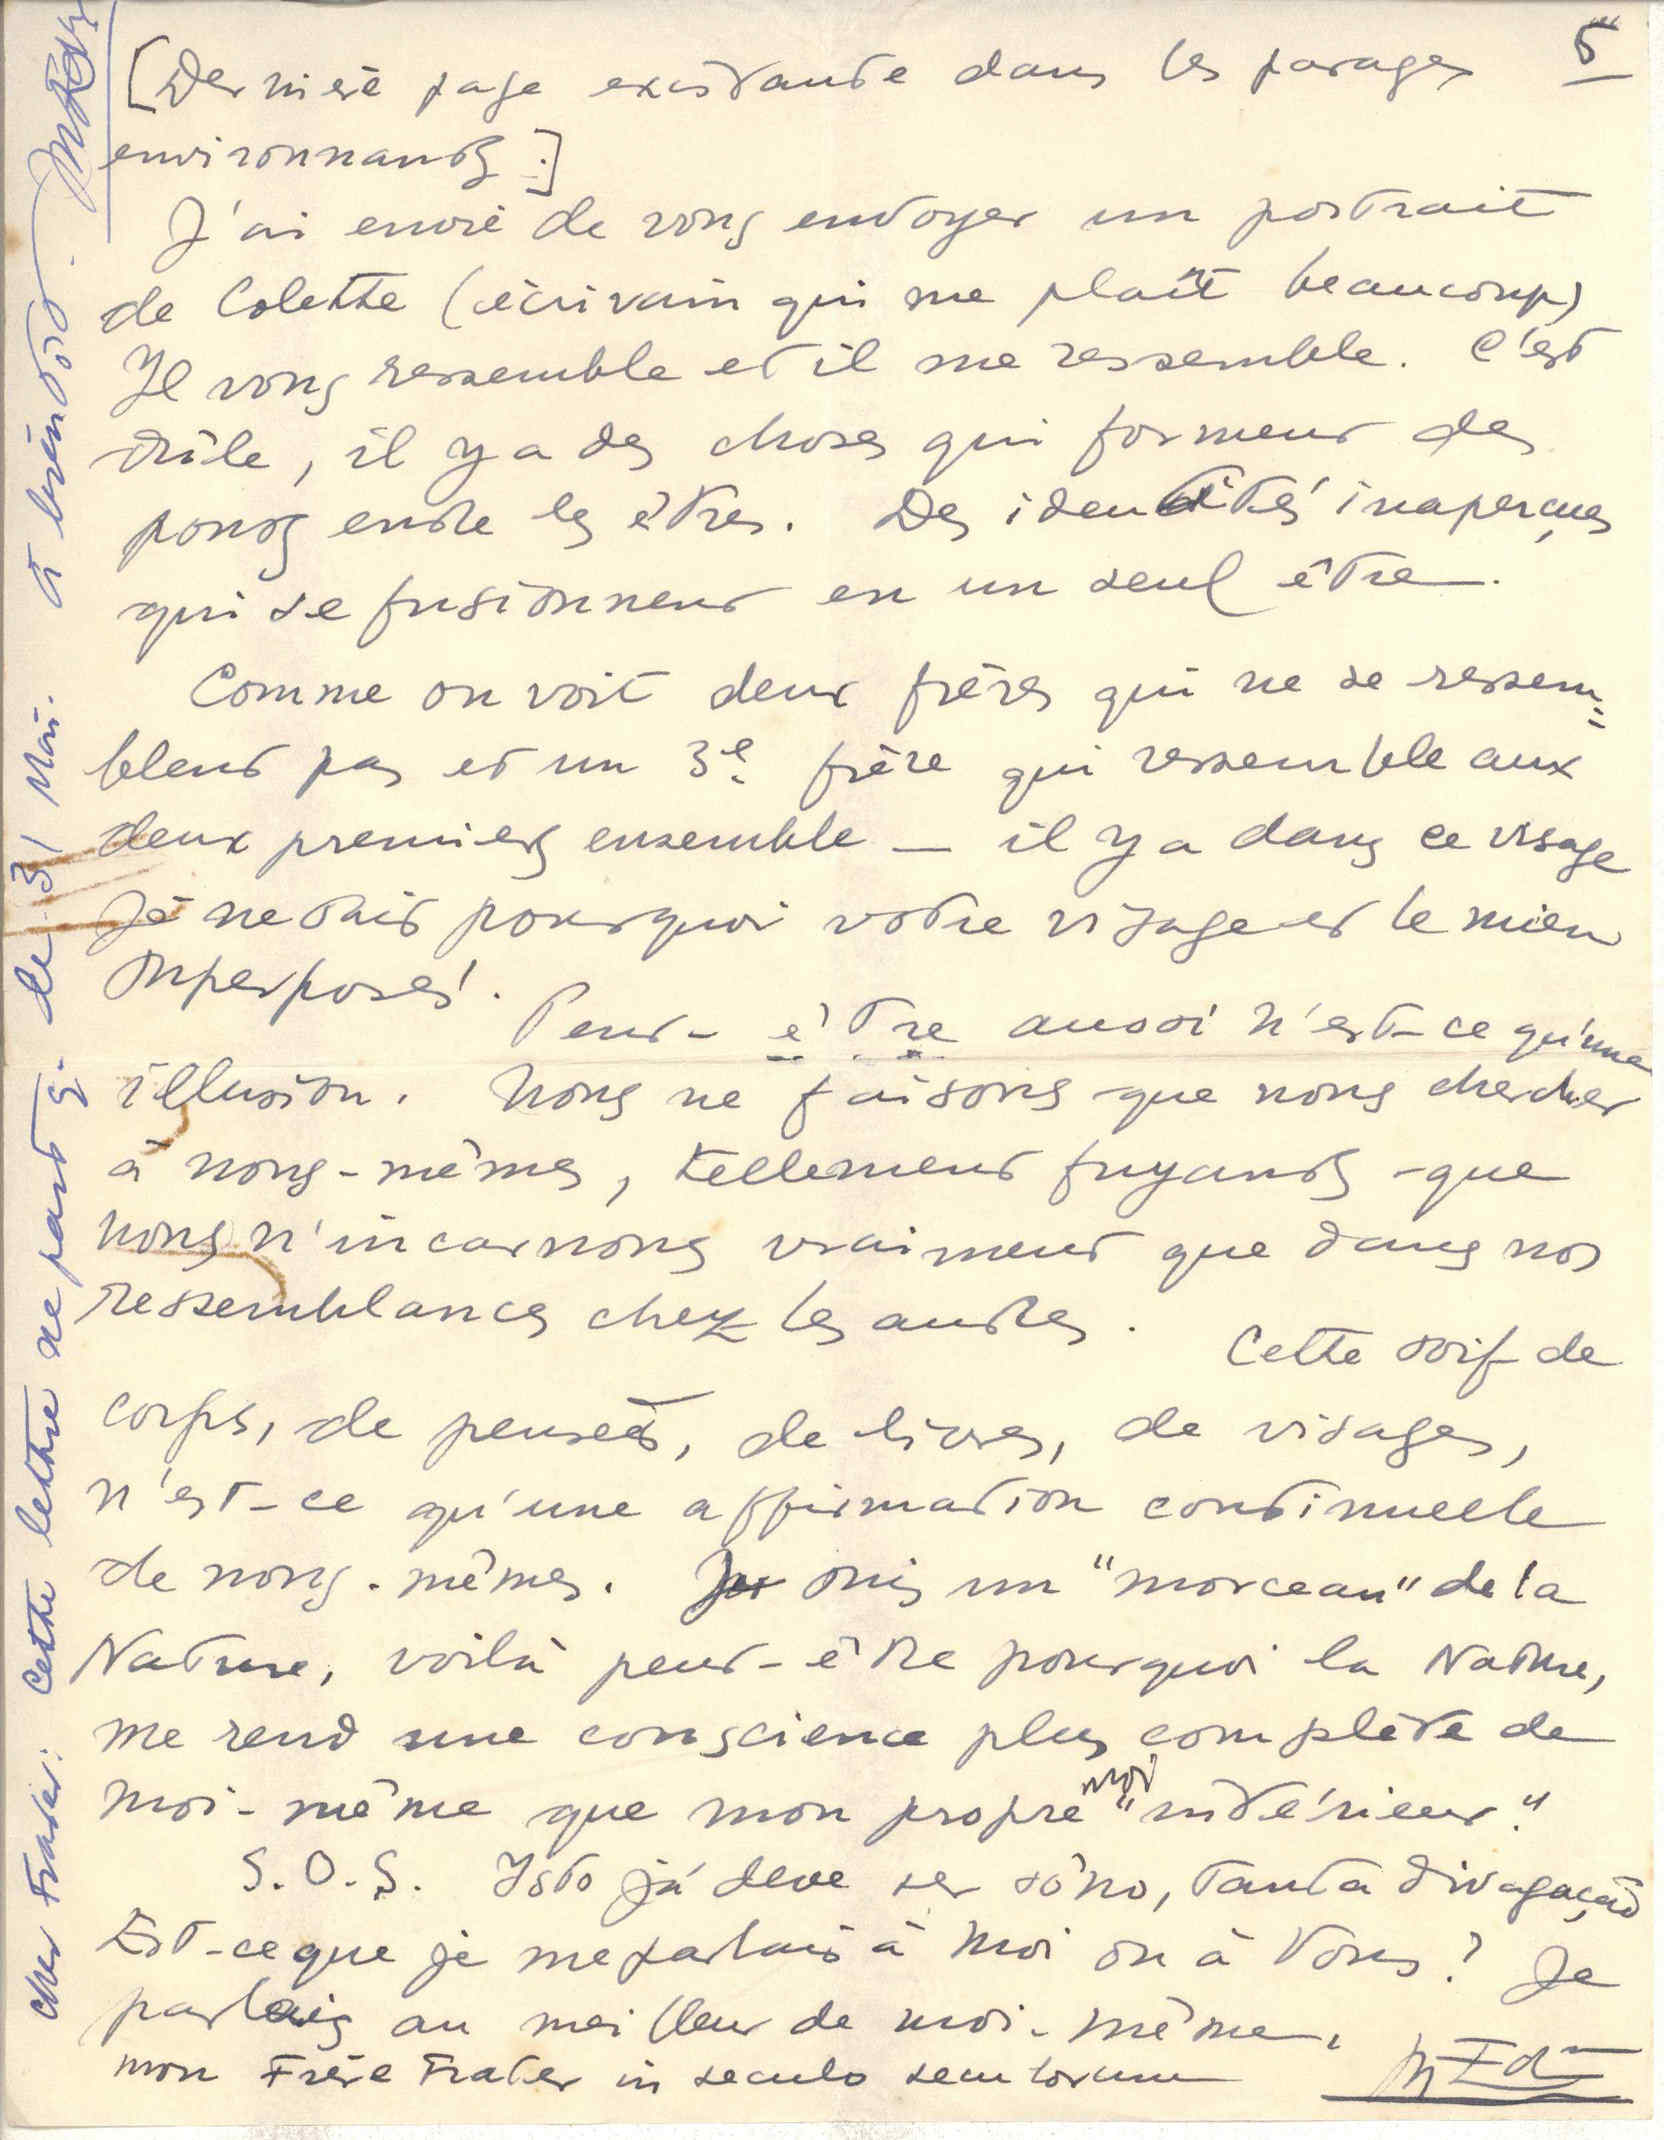 5
[Dernière page existante dans les parages
environnants.]
J'ai envie de vous envoyer un portrait
de Colette (écrivain qui me plaît beaucoup)
Il vous ressemble et il me ressemble. C'est
drôle, il y a des choses qui forment des
ponts entre les êtres. Des identités inaperçues
qui se fusionnent en un seul être.
Comme on voit deux frères qui ne se ressem=
blent pas et un 3e frère qui ressemble aux
deux premiers ensemble — il y a dans ce visage
Je ne sais pourquoi votre visage et le mien
superposés.
Peut-être aussi n'est-ce qu'une
illusion. Nous ne faisons que nous chercher
à nous-mêmes, tellement fuyants que
nous n'incarnons vraiment que dans nos
ressemblances chez les autres.
Cette soif de
corps, de pensées, de livres, de visages,
n'est-ce qu'une affirmation continuelle
de nous-mêmes. Je suis un "morceau" de la
Nature, voilà peut-être pourquoi la Nature,
me rend une conscience plus complète de
moi-même que mon propre moi "intérieur."
S.O.S. Isto já deve ser sôno, tanta divagação
Est-ce que je me parlais à Moi ou à Vous? Je
parlais au meilleur de moi-même,
mon Frère Frater in seculo seculorum
Cher Frater: Cette lettre ne part q. le 31 Mai. à bientôt.